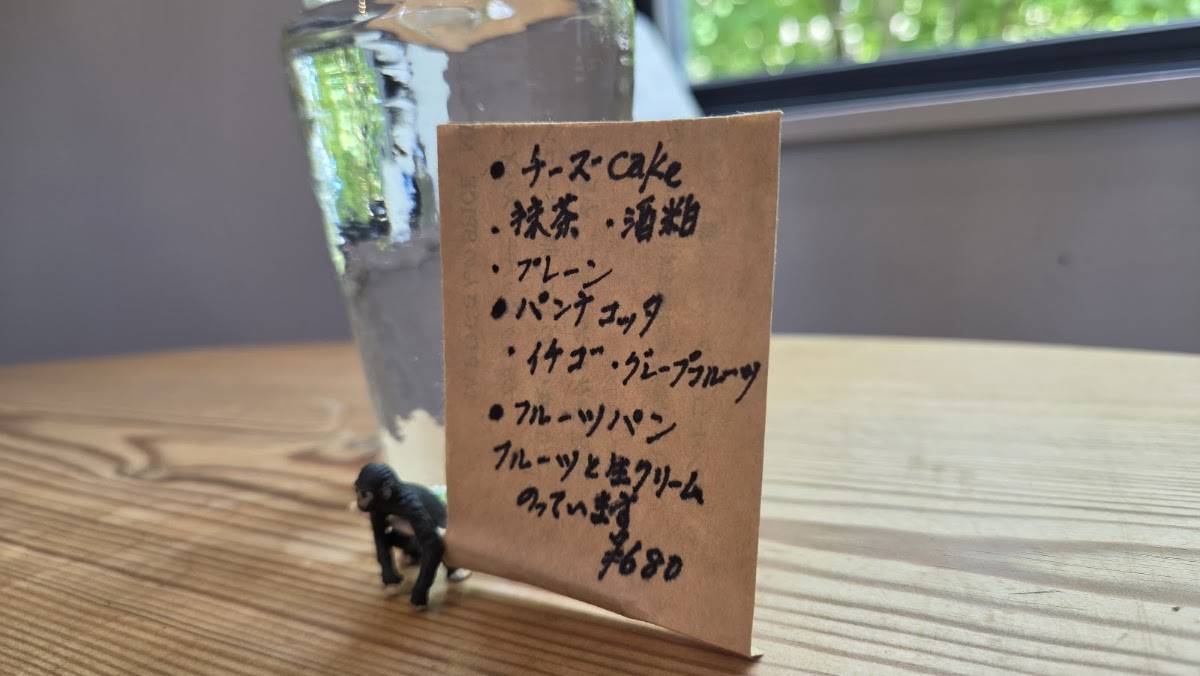 ● チーズcake
・抹茶 ・酒粕
・プレーン
● パンナコッタ
・イチゴ ・グレープフルーツ
● フルーツパン
フルーツと生クリーム
のっています
¥680